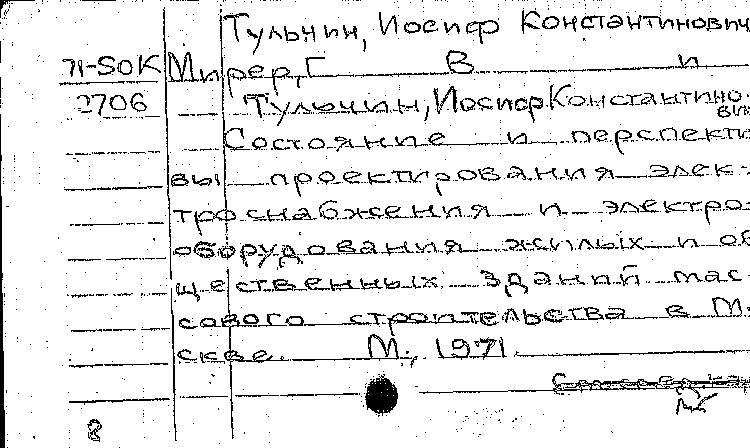 Тульчин, Иосиф Константинович
71-SOK Мирер, Г. В. и
2706 Тульчин, Иосиф Константино-
вич
Состояние и перспекти
вы проектирования элек-
троснабжения и электро-
оборудования жилых и об
щественных зданий мас
сового строительства в М.
скве. М., 1971.
8